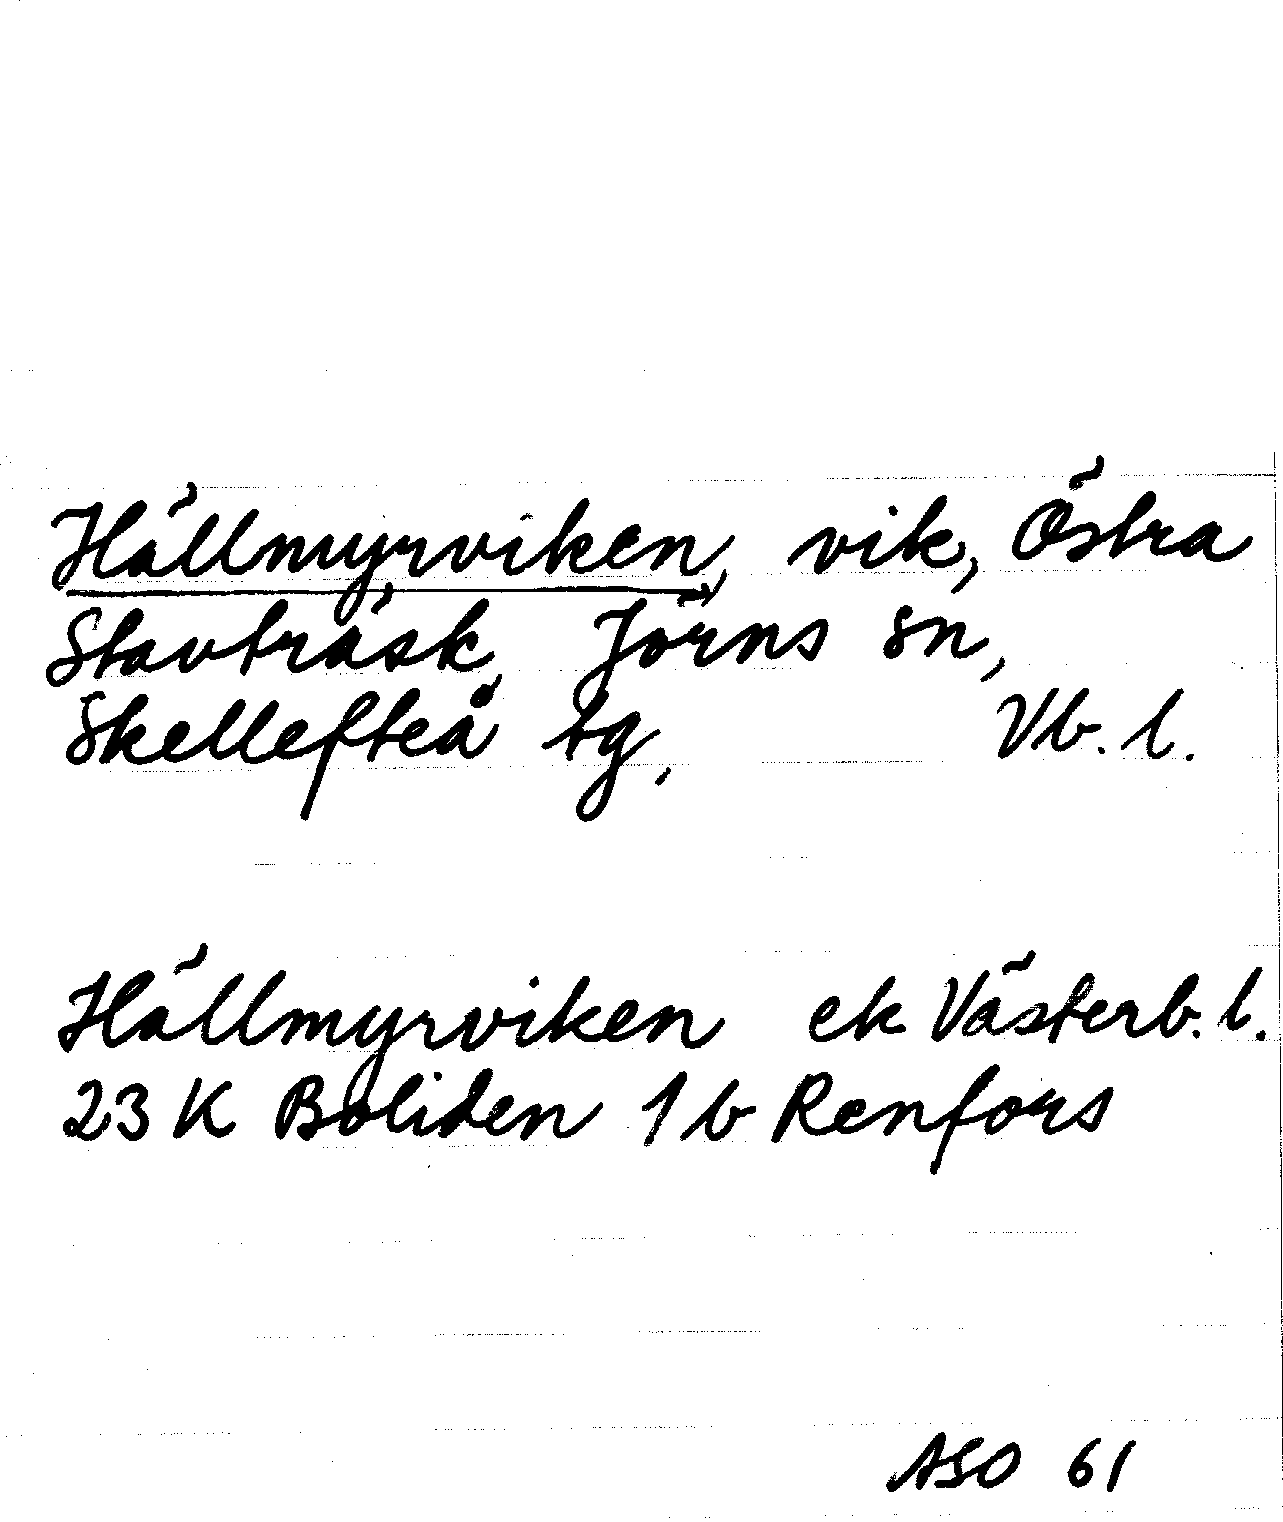 Hällmyrviken, vik, Östra
Stavträsk, Jörns sn,
Skellefteå tg, Vb. l.
Hällmyrviken ek Västerb. l.
23 K Boliden 1 b Renfors
ASO 61